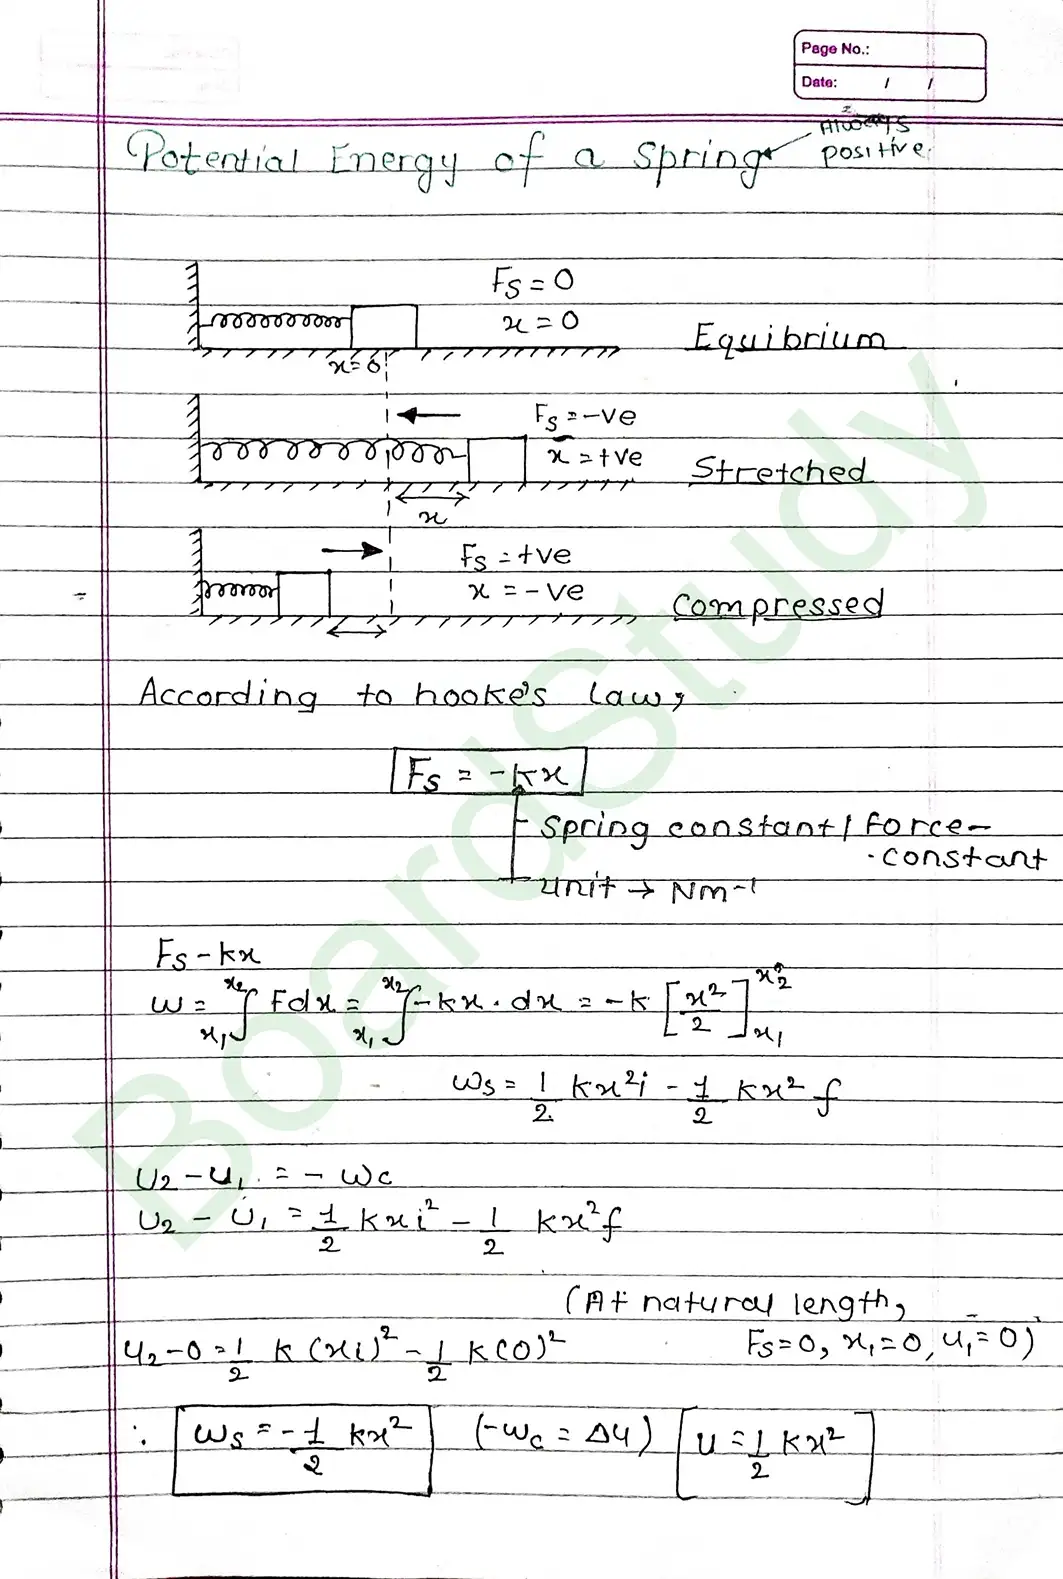 Page No.:
Date: / /
Always
Potential Energy of a Spring positive.
Fs = 0
x = 0
Equibrium
x = 0
Fs = -ve
x = +ve
Stretched
x
Fs = +ve
x = -ve
Compressed
According to hooke's Law,
Fs = -kx
Spring constant / force-
constant
unit → Nm⁻¹
Fs - kx
w = x₁∫x₂ Fdx = x₁∫x₂ -kx . dx = -k [x²/2] x₁ x₂
ws = 1/2 kx²i - 1/2 kx²f
U2 - U1 = - wc
U2 - U1 = 1/2 kxi² - 1/2 kx²f
(At natural length,
U2 - 0 = 1/2 k (xi)² - 1/2 k(0)² Fs=0, x₁=0, U₁=0)
∴ ws = -1/2 kx² (-wc = ΔU) U = 1/2 kx²
BoardStudy